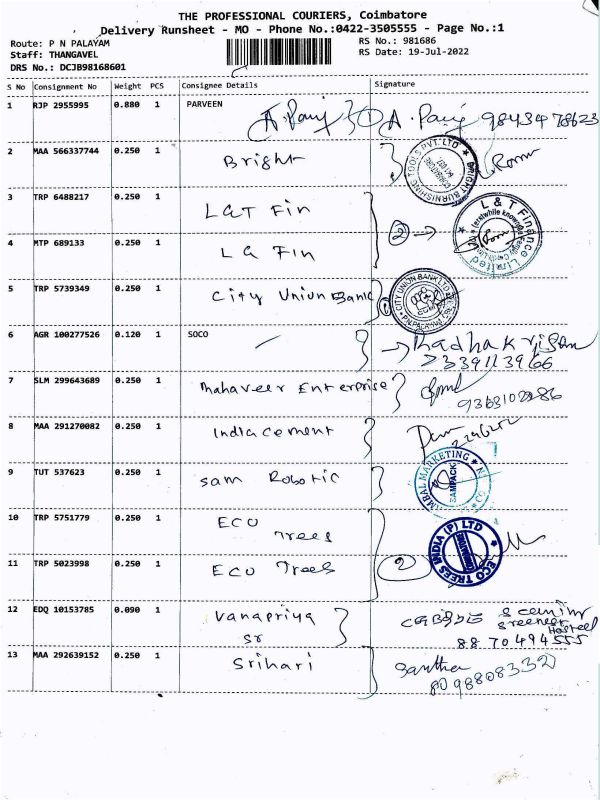 THE PROFESSIONAL COURIERS, Coimbatore
Delivery Runsheet - MO - Phone No.:0422-3505555 - Page No.:1
Route: P N PALAYAM
Staff: THANGAVEL
DRS No.: DCJB98168601
RS No.: 981686
RS Date: 19-Jul-2022
S No Consignment No Weight PCS Consignee Details Signature
1 RJP 2955995 0.880 1 PARVEEN 98434 78623
2 MAA 566337744 0.250 1 Bright
3 TRP 6488217 0.250 1 L&T Fin
4 MTP 689133 0.250 1 L& Fin
5 TRP 5739349 0.250 1 City Union Bank
6 AGR 100277526 0.120 1 SOCO Radhakrisan
7339113966
7 SLM 299643689 0.250 1 Mahaveer Enterprise
8 MAA 291270082 0.250 1 India cement
9 TUT 537623 0.250 1 Sam Robotic
10 TRP 5751779 0.250 1 ECO
Trees
11 TRP 5023998 0.250 1 ECO Trees 2
12 EDQ 10153785 0.090 1 Vanapriya
Sr
88 70494555
13 MAA 292639152 0.250 1 Srihari Santha
8098808332